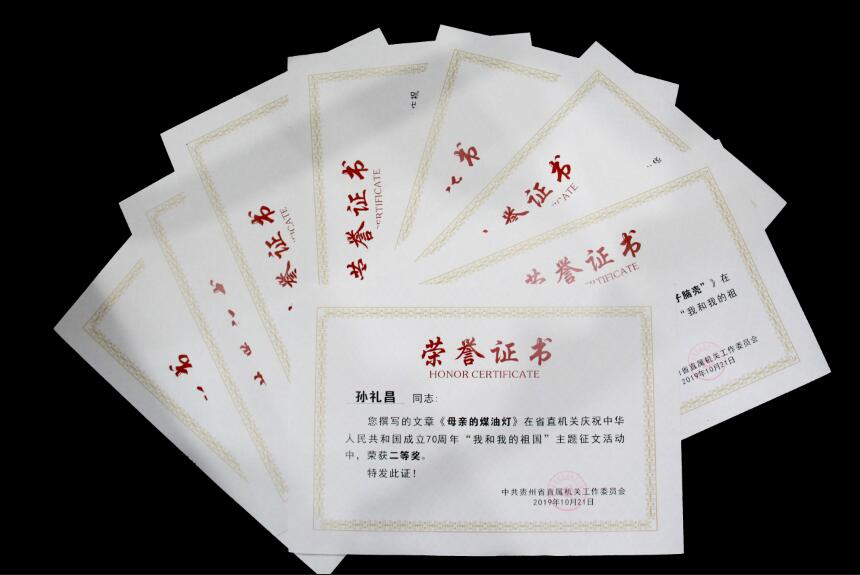 荣誉证书
HONOR CERTIFICATE
孙礼昌 同志：
您撰写的文章《母亲的煤油灯》在省直机关庆祝中华
人民共和国成立70周年“我和我的祖国”主题征文活动
中，荣获二等奖。
特发此证！
中共贵州省直属机关工作委员会
2019年10月21日
荣誉证书
CERTIFICATE
子脑壳”》在
“我和我的祖
省直属机关工作委员会
2019年10月21日
誉证书
证书
荣誉证书
CERTIFICATE
誉证书
书